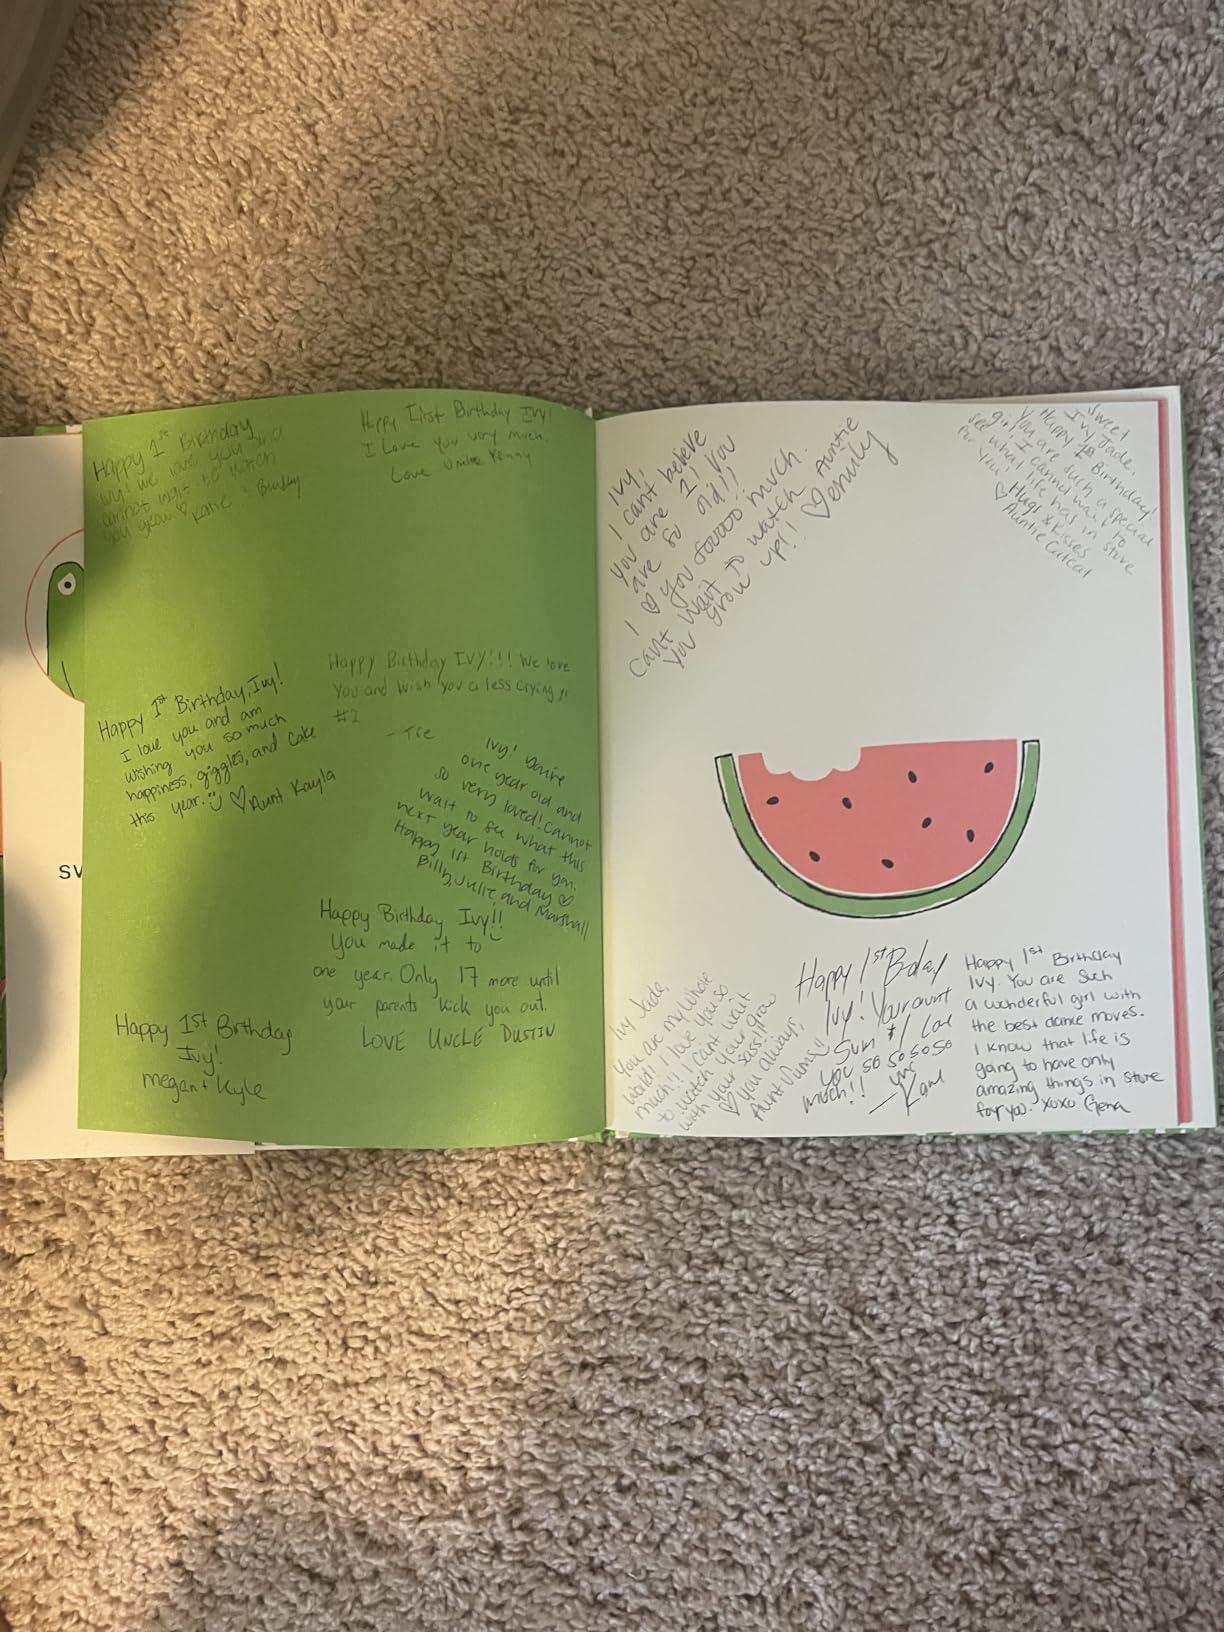 Happy 1st Birthday
Ivy! We love you and
cannot wait to watch
you grow ♡ Katie + Bradley
Happy First Birthday Ivy!
I Love you very much.
Love Uncle
Happy 1st Birthday, Ivy!
I love you and am
wishing you so much
happiness, giggles, and cake
this year. ♡ Aunt Kayla
Happy Birthday IVY!!! We love
You and wish you a less crying yr
#2
Ivy! You're
one year old and
so very loved! Cannot
wait to see what this
next year holds for you.
Happy 1st Birthday ♡
Billy, Julie and Marshall
Happy Birthday Ivy!!
You made it to
one year. Only 17 more until
your parents kick you out.
LOVE UNCLE DUSTIN
Happy 1st Birthday
Ivy!
Megan + Kyle
SW
Ivy,
I can't believe
you are 1! You
are so old!!
I ♡ you sooooo much.
Can't wait to watch
you grow up!! ♡ Auntie
Emily
Sweet
Ivy Jade,
Happy 1st Birthday!
You are such a special
girl, I cannot wait to
see what life has in store
for you!
Hugs & Kisses
♡ Auntie Catcat
Ivy Jade,
You are my whole
world! I love you so
much!! I can't wait
to watch you grow
with your sass!
♡ you always,
Aunt
Happy 1st Bday
Ivy! Your aunt
Sum I Love
you so so so so
much!!
Happy 1st Birthday
Ivy. You are such
a wonderful girl with
the best dance moves.
I know that life is
going to have only
amazing things in store
for you. xoxo Gena